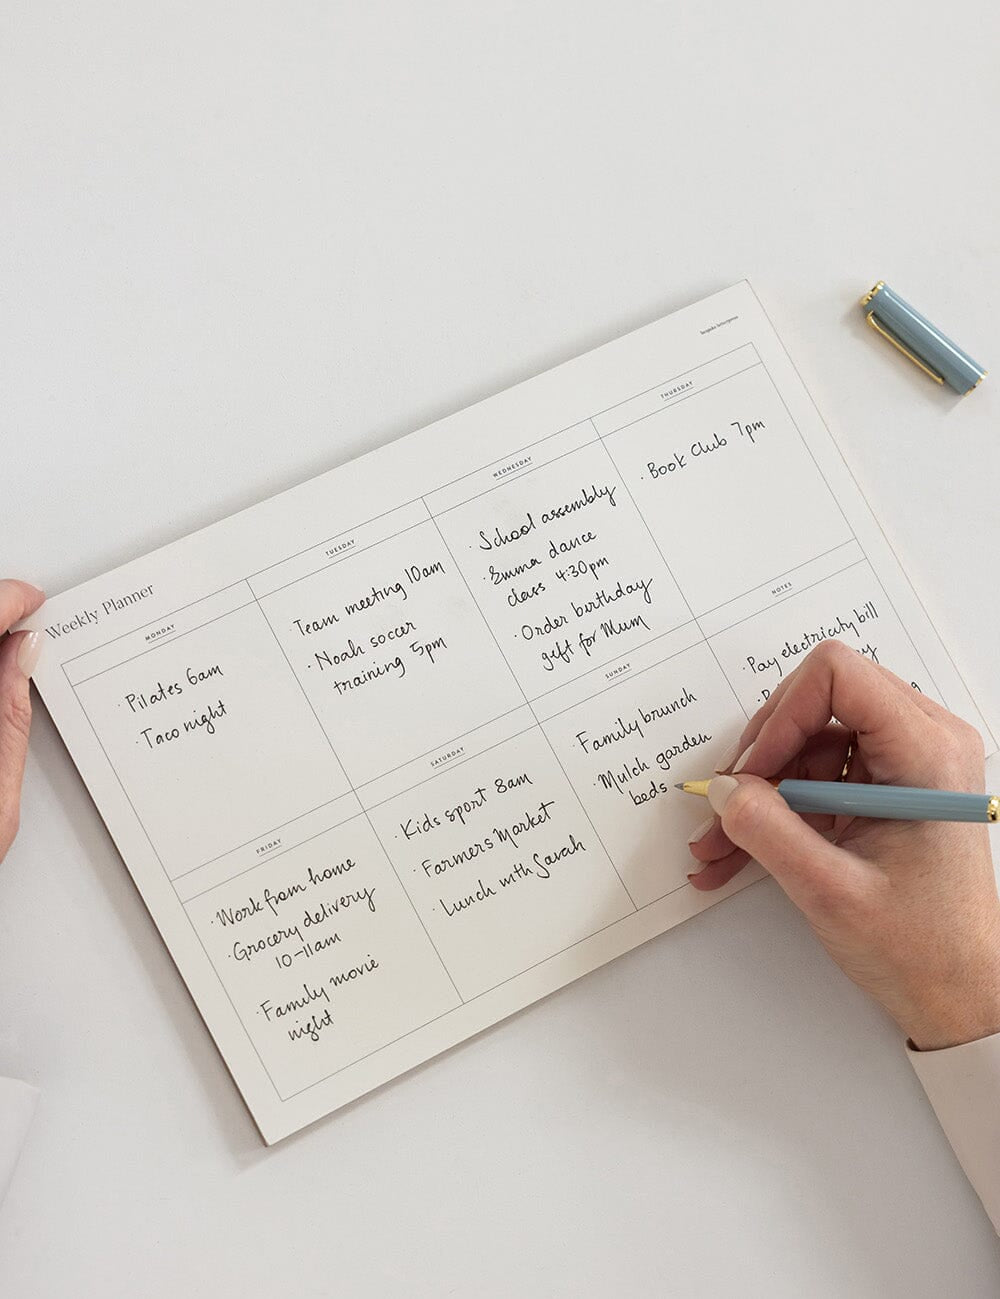 bespoke letterpress
Weekly Planner
MONDAY
· Pilates 6am
· Taco night
TUESDAY
· Team meeting 10am
· Noah soccer
training 5pm
WEDNESDAY
· School assembly
· Emma dance
class 4:30pm
· Order birthday
gift for Mum
THURSDAY
· Book Club 7pm
FRIDAY
· Work from home
· Grocery delivery
10-11am
· Family movie
night
SATURDAY
· Kids sport 8am
· Farmers Market
· Lunch with Sarah
SUNDAY
· Family brunch
· Mulch garden
beds
NOTES
· Pay electricity bill